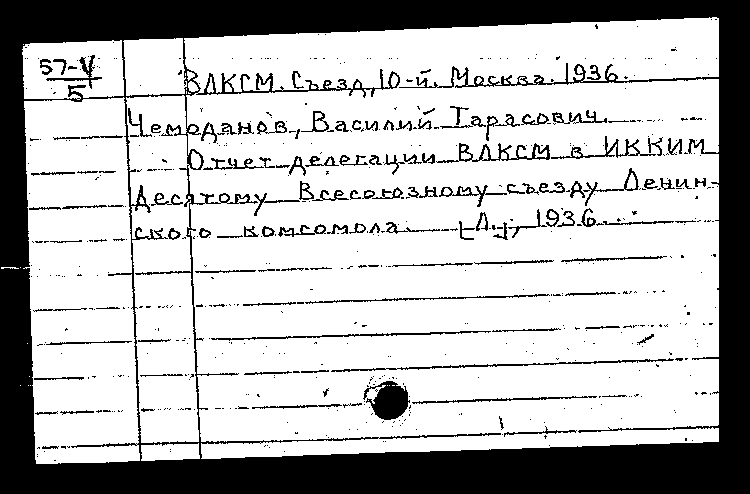 57-V
5
ВЛКСМ. Съезд, 10-й. Москва. 1936.
Чемоданов, Василий Тарасович.
Отчет делегации ВЛКСМ в ИККИМ
Десятому Всесоюзному съезду Ленин-
ского комсомола. [Л.], 1936.